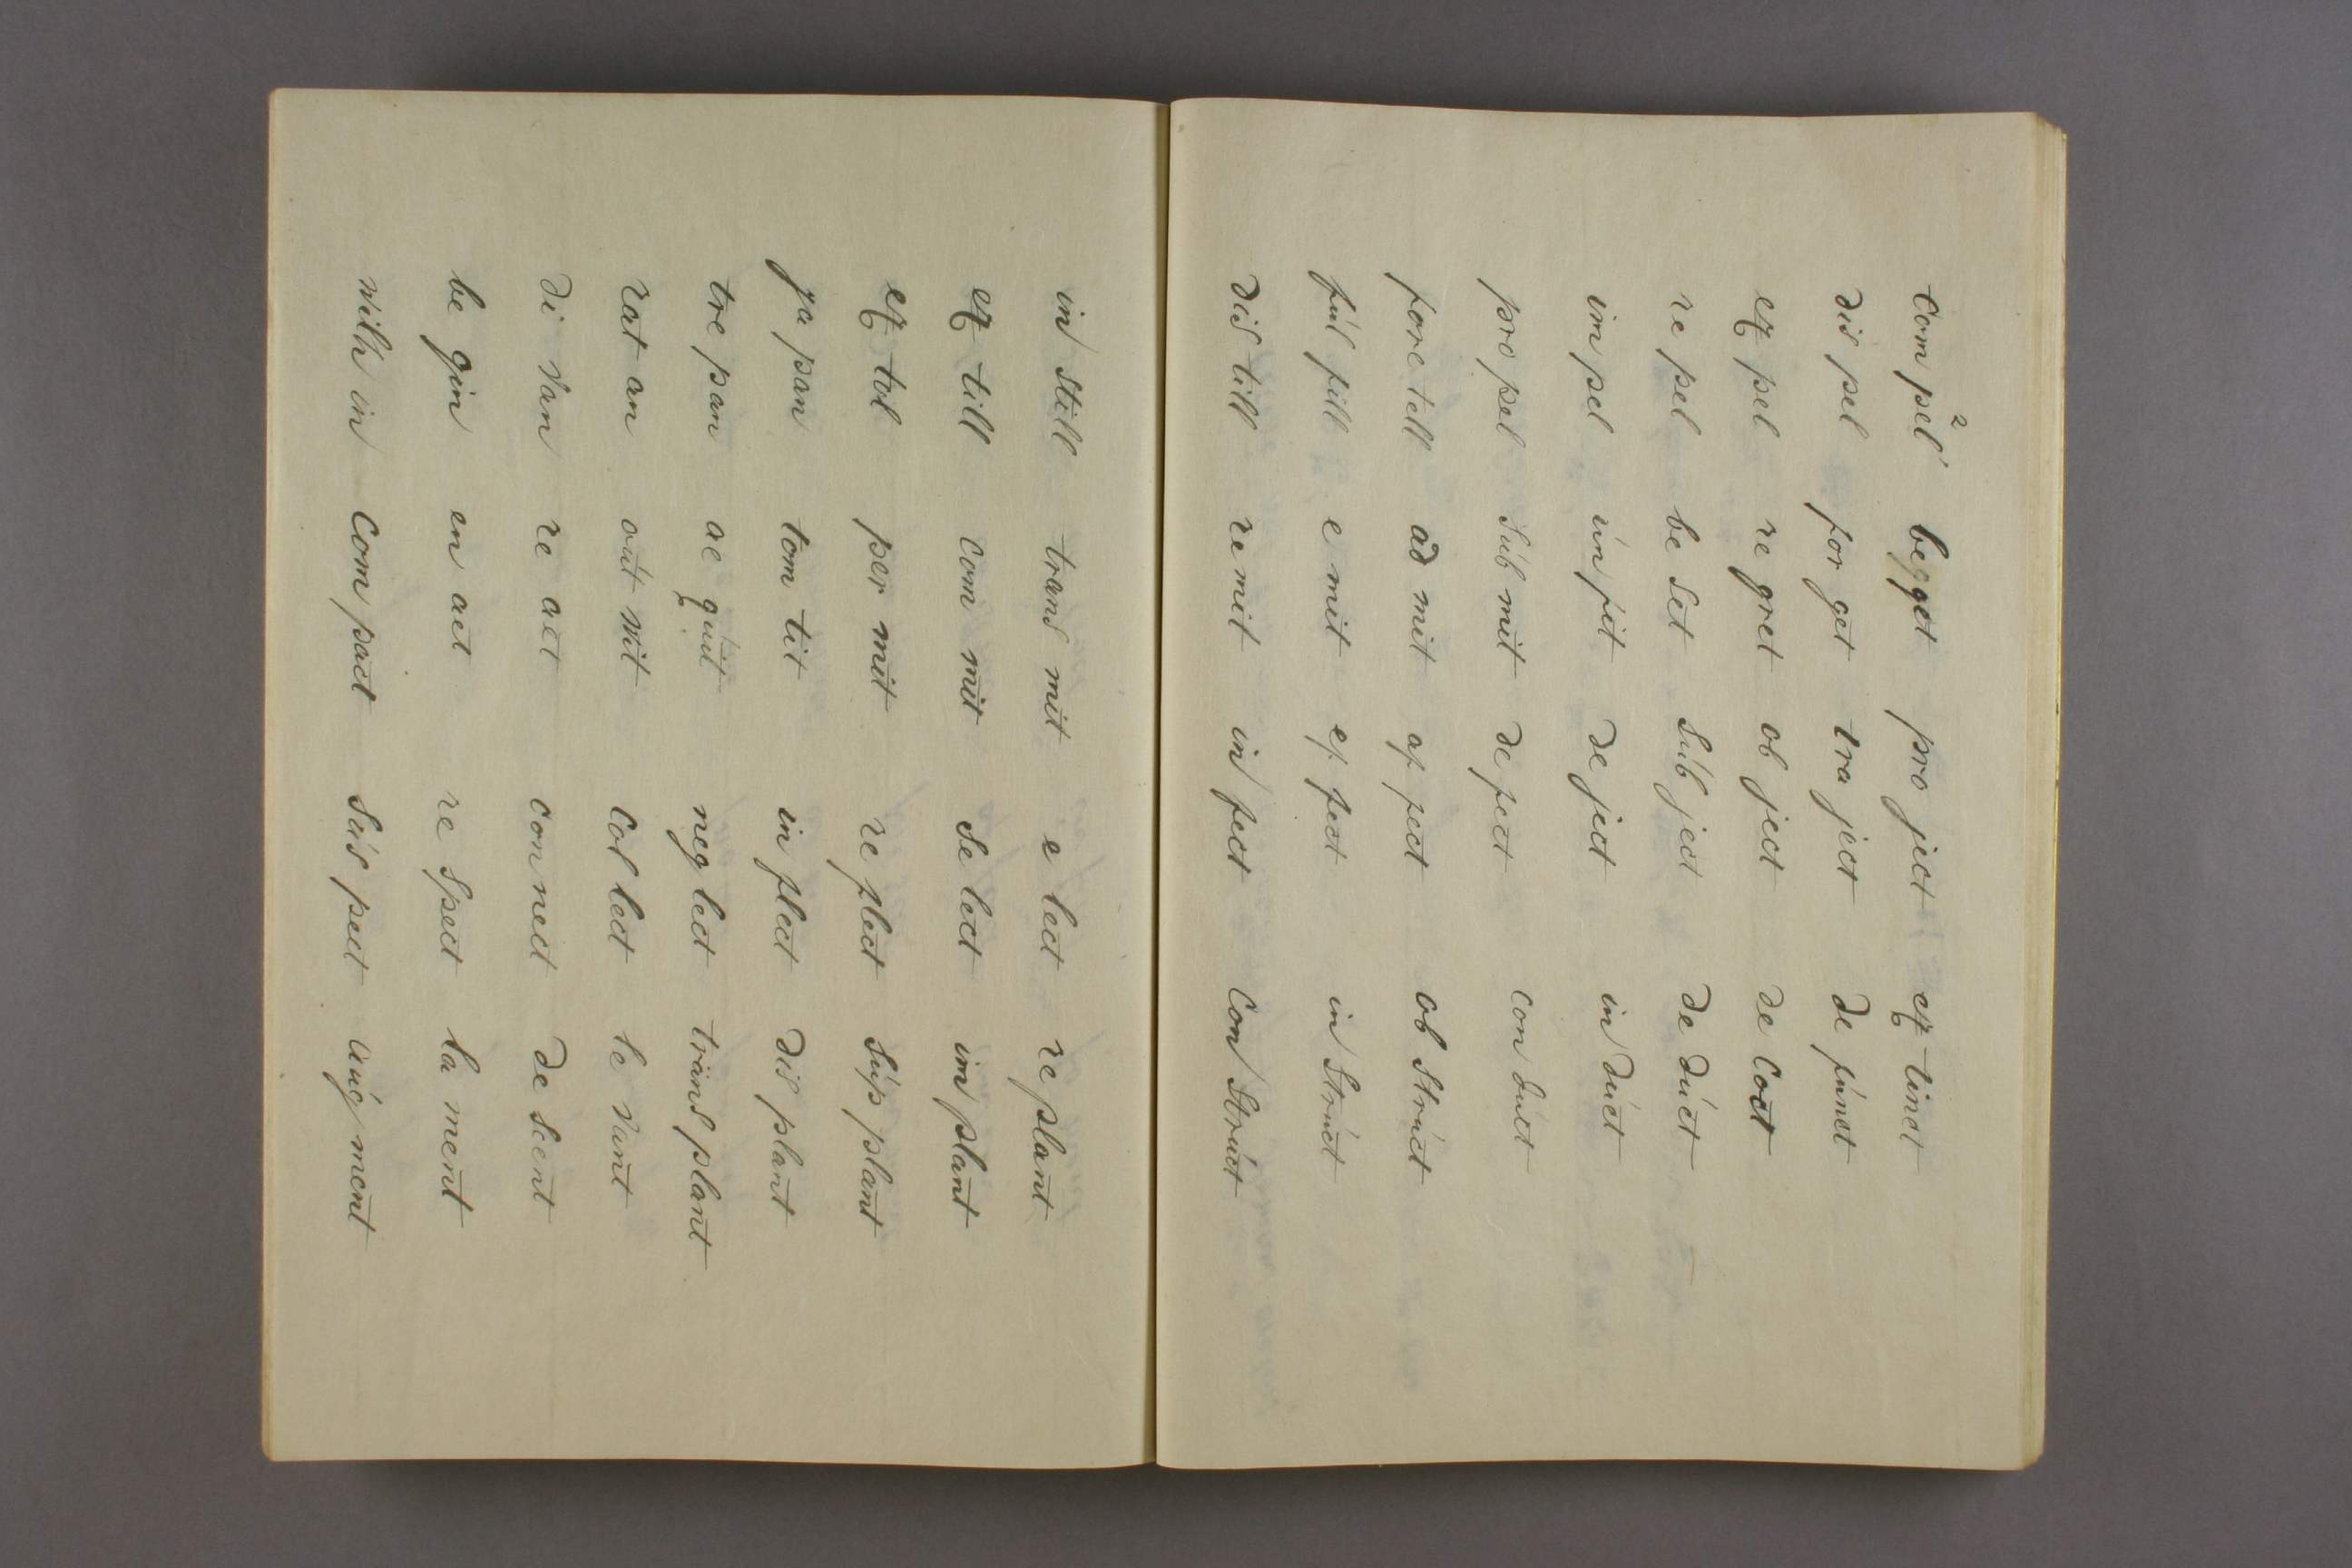 com pel´ 2 begget pro ject ex tinct
dis pel for get tra ject de funct
ex pel re gret ob ject de coct
re pel be set sub ject de duct
im pel un fit de ject in duct
pro pel sub mit de fect con duct
fore tell ad mit af fect ob struct
ful fill e mit ef fect in struct
dis till re mit in fect con struct
in still trans mit e lect re plant
ex till com mit se lect im plant
ex tol per mit re flect sup plant
ja pan tom tit in flect dis plant
tre pan ac quit neg lect trans plant
rat an out wit col lect le vant
di van re act con nect de scent
be gin en act re spect la ment
with in com pact sus pect aug ment